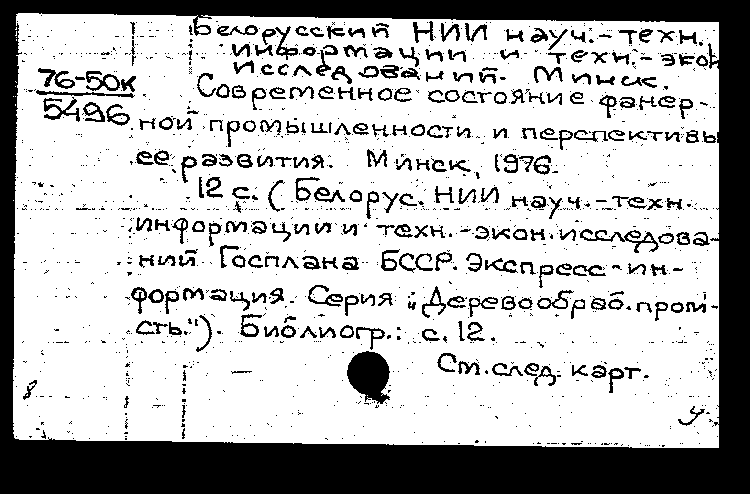 Белорусский НИИ науч.-техн.
информации и техн.-экон
исследований. Минск.
76-50к
5496
Современное состояние фанер-
ной промышленности и перспективы
ее развития. Минск, 1976.
12 с. (Белорус. НИИ науч.-техн.
информации и техн.-экон. исследова-
ний Госплана БССР. Экспресс-ин-
формация. Серия „Деревообраб. пром-
сть."). Библиогр.: с. 12.
См. след. карт.
8
у